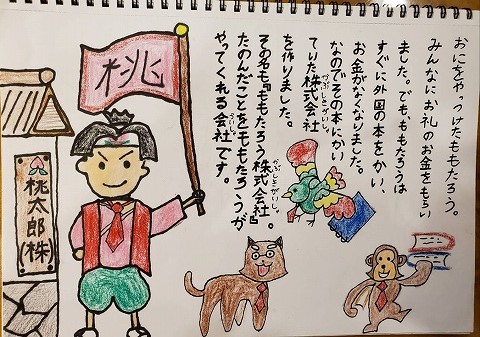 おにをやっつけたももたろう。
みんなにお礼のお金をもらい
ました。でも、ももたろうは
すぐに外国の本をかい、
お金がなくなりました。
なのでその本にかい
ていた株式会社
かぶしきがいしゃ
を作りました。
その名も『ももたろう株式会社』。
かぶしきがいしゃ
たのんだことをももたろうが
やってくれる会社です。
かいしゃ
桃
桃太郎(株)